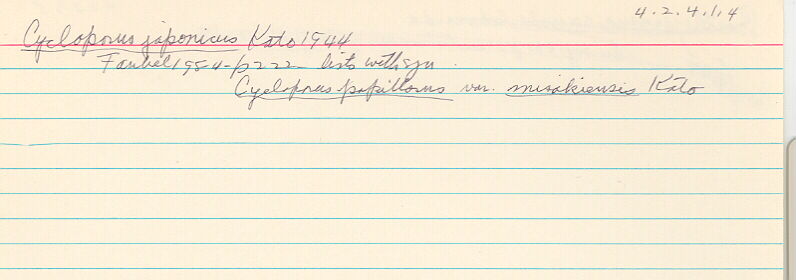 4.2.4.1.4
Cycloporus japonicus Kato 1944
Faubel 1984-p222 lists with syn.
Cycloporus papillosus var. misakiensis Kato